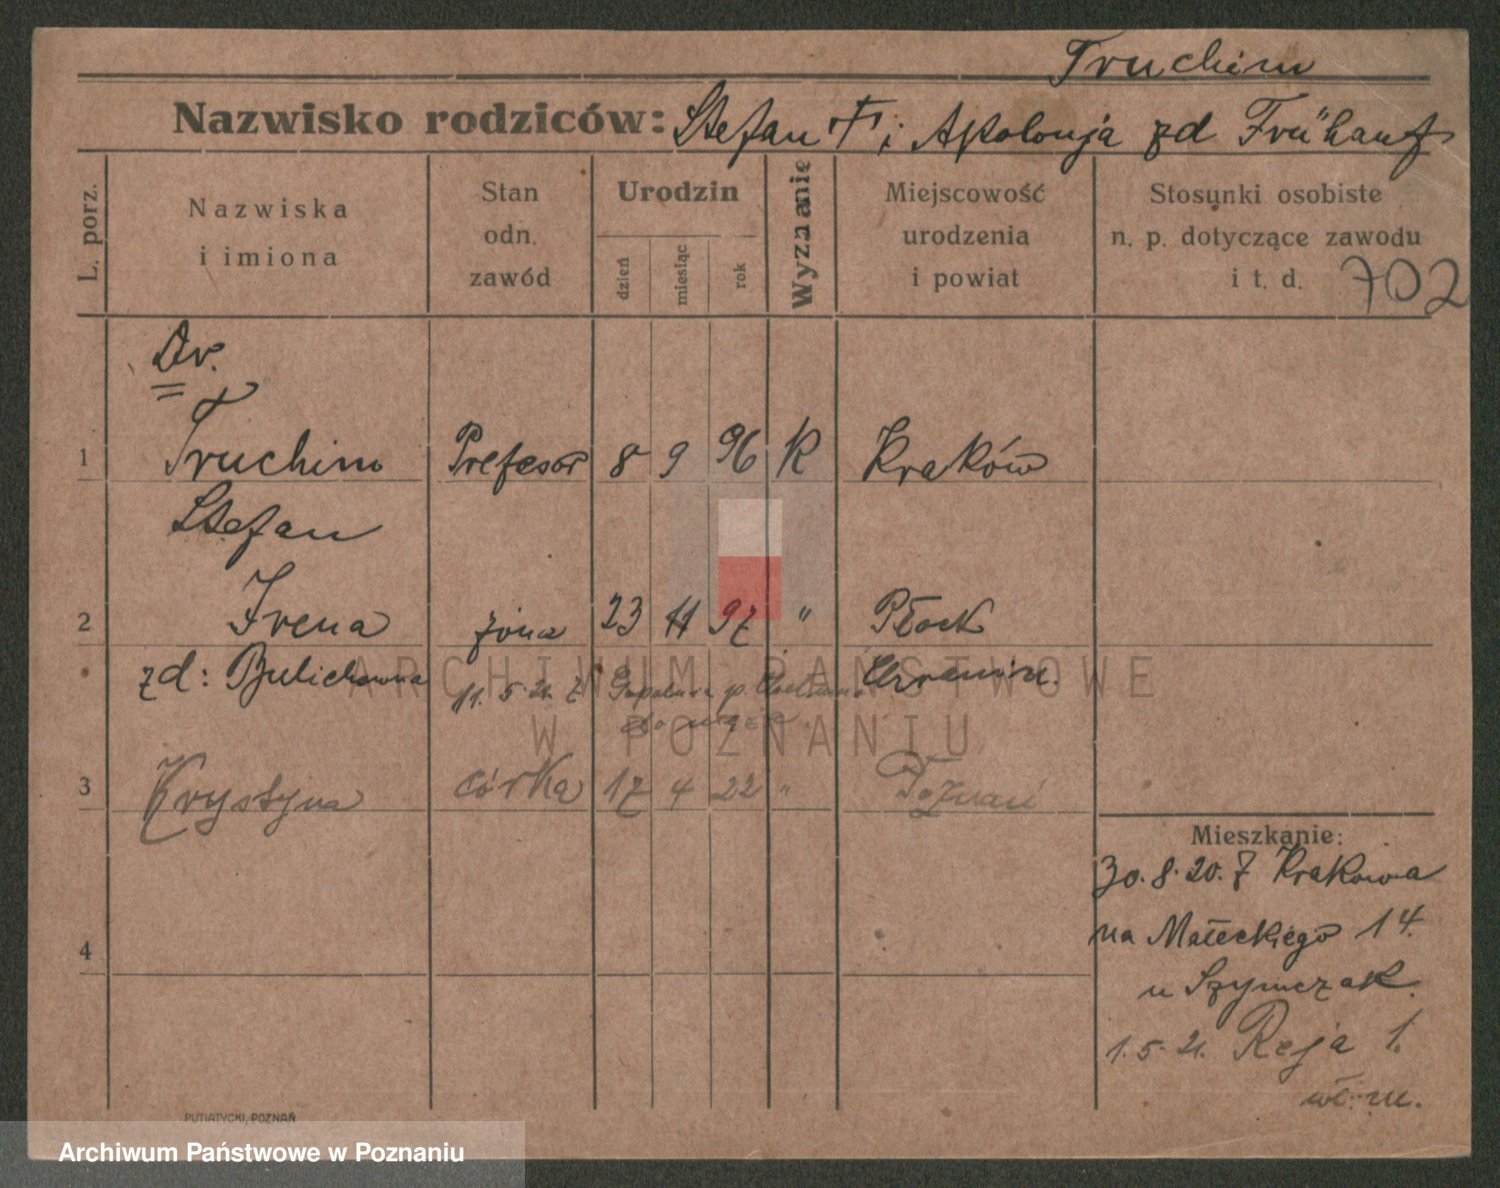 Truchim
Nazwisko rodziców: Stefan † i Apolonja zd Frühauf
L. porz.
Nazwiska i imiona
Stan odn. zawód
Urodzin
dzień
miesiąc
rok
Wyznanie
Miejscowość urodzenia i powiat
Stosunki osobiste n. p. dotyczące zawodu i t. d.
702
Dr.
1 Truchim Profesor 8 9 96 K Kraków
Stefan
2 Irena żona 23 11 97 " Płock
zd: Bulichowna 11. 5. 21. z
do męża
3 Krystyna córka 17 4 22 " Poznań
Mieszkanie:
30. 8. 20. z Krakowa
na Małeckiego 14.
4
u Szymczak.
1. 5. 21. Reja 1.
wł. m.
PUTIATYCKI, POZNAŃ
ARCHIWUM PAŃSTWOWE
W POZNANIU
Archiwum Państwowe w Poznaniu